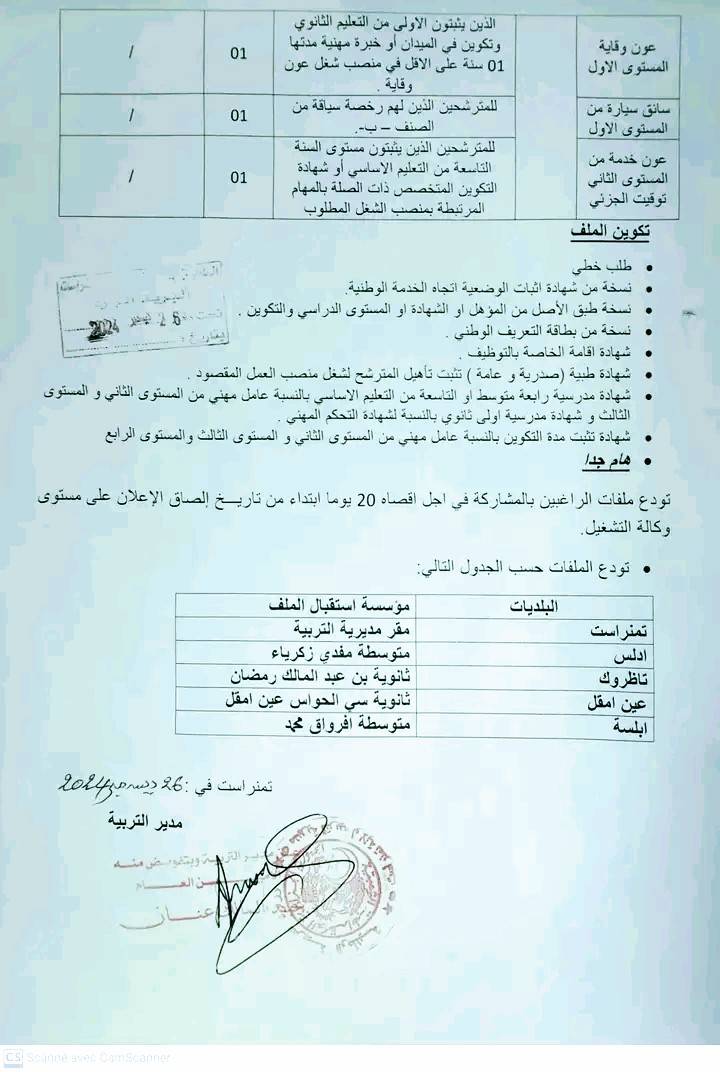 عون وقاية المستوى الاول
الذين يثبتون الاولى من التعليم الثانوي
وتكوين في الميدان أو خبرة مهنية مدتها
01 سنة على الاقل في منصب شغل عون
وقاية .
01
/
سائق سيارة من
المستوى الاول
للمترشحين الذين لهم رخصة سياقة من
الصنف – ب-.
01
/
عون خدمة من
المستوى الثاني
توقيت الجزئي
للمترشحين الذين يثبتون مستوى السنة
التاسعة من التعليم الاساسي أو شهادة
التكوين المتخصص ذات الصلة بالمهام
المرتبطة بمنصب الشغل المطلوب
01
/
تكوين الملف
• طلب خطي
• نسخة من شهادة اثبات الوضعية اتجاه الخدمة الوطنية.
• نسخة طبق الأصل من المؤهل او الشهادة او المستوى الدراسي والتكوين .
• نسخة من بطاقة التعريف الوطني .
• شهادة اقامة الخاصة بالتوظيف .
• شهادة طبية (صدرية و عامة ) تثبت تأهيل المترشح لشغل منصب العمل المقصود .
• شهادة مدرسية رابعة متوسط او التاسعة من التعليم الاساسي بالنسبة عامل مهني من المستوى الثاني و المستوى
الثالث و شهادة مدرسية اولى ثانوي بالنسبة لشهادة التحكم المهني .
• شهادة تثبت مدة التكوين بالنسبة عامل مهني من المستوى الثاني و المستوى الثالث والمستوى الرابع
• هام جدا/
26 2024
تودع ملفات الراغبين بالمشاركة في اجل اقصاه 20 يوما ابتداء من تاريخ إلصاق الإعلان على مستوى
وكالة التشغيل.
• تودع الملفات حسب الجدول التالي:
البلديات مؤسسة استقبال الملف
تمنراست مقر مديرية التربية
ادلس متوسطة مفدي زكرياء
تاظروك ثانوية بن عبد المالك رمضان
عين امقل ثانوية سي الحواس عين امقل
ابلسة متوسطة افرواق محمد
تمنراست في :26 ديسمبر 2024
مدير التربية
مدير التربية وبتفويض منه
العام
عنان
CS Scanné avec CamScanner